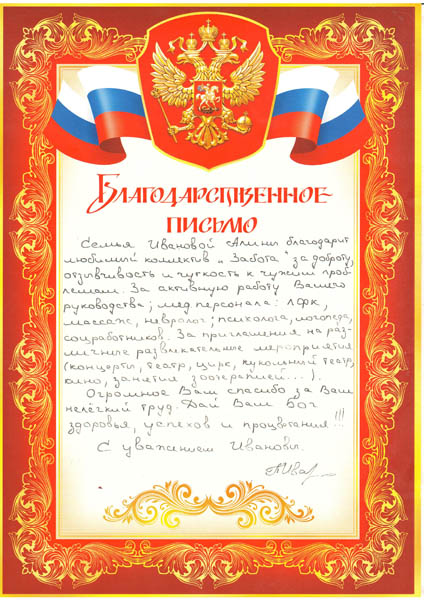 БЛАГОДАРСТВЕННОЕ
ПИСЬМО
Семья Ивановой Алины благодарит
любимый коллектив „Забота" за доброту,
отзывчивость и чуткость к чужим проб-
лемам. За активную работу Вашего
руководства; мед.персонала: ЛФК,
массаж, невролог; психолога, логопеда,
соцработников. За приглашения на раз-
личные развлекательные мероприятия
(концерты, театр, цирк, кукольный театр,
кино, занятия зоотерапией...).
Огромное Вам спасибо за Ваш
нелёгкий труд. Дай Вам Бог
здоровья, успехов и процветания!!!
С уважением Ивановы.